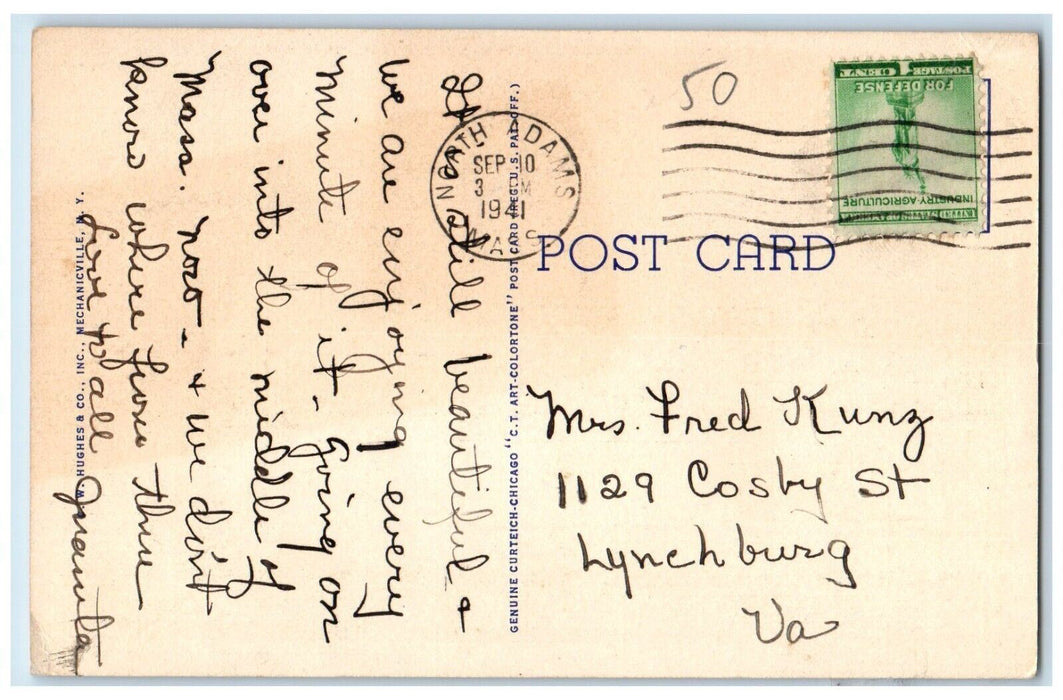 It is still beautiful +
we are enjoying every
minute of it. Going on
over into the middle of
Mass. now - + we don't
know where from there
Love to all Juanita
W. J. HUGHES & CO., INC., MECHANICVILLE, N. Y.
GENUINE CURTEICH-CHICAGO "C.T. ART-COLORTONE" POST CARD (REG. U.S. PAT. OFF.)
NORTH ADAMS
SEP 10
3 PM
1941
MASS.
50
UNITED STATES OF AMERICA
INDUSTRY AGRICULTURE
FOR DEFENSE
POSTAGE 1 CENT
POST CARD
Mrs. Fred Kunz
1129 Cosby St
Lynchburg
Va